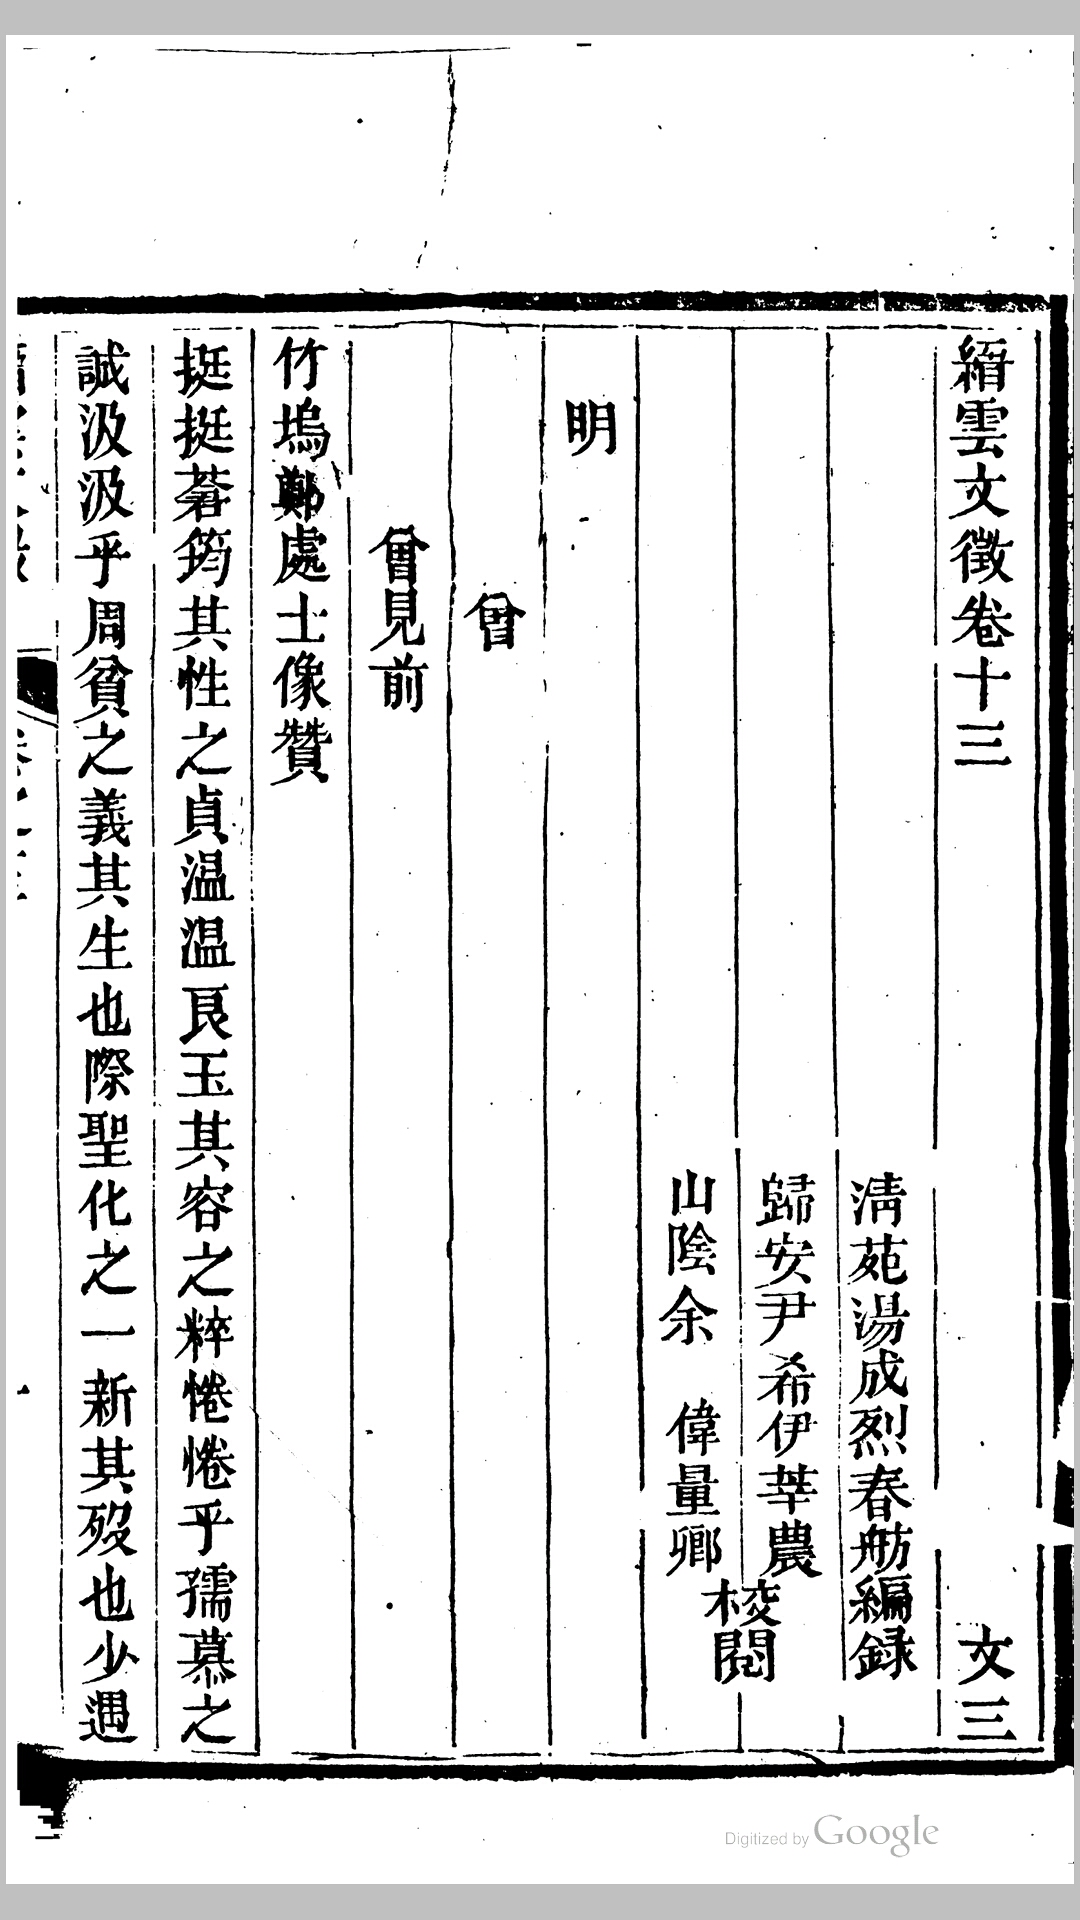 縉雲文徵卷十三　文三
淸苑湯成烈春舫編錄
歸安尹希伊莘農
山陰余　偉量卿
校閱
明
曾
曾見前
竹塢鄭處士像贊
挺挺蒼筠其性之貞溫溫良玉其容之粹惓惓乎孺慕之
誠汲汲乎周貧之義其生也際聖化之一新其歿也少遇
Digitized by Google